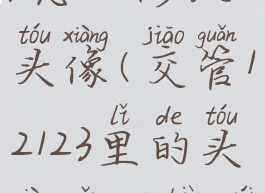 tóu xiàng jiāo guǎn
头像(交管1
lǐ de tóu
2123里的头